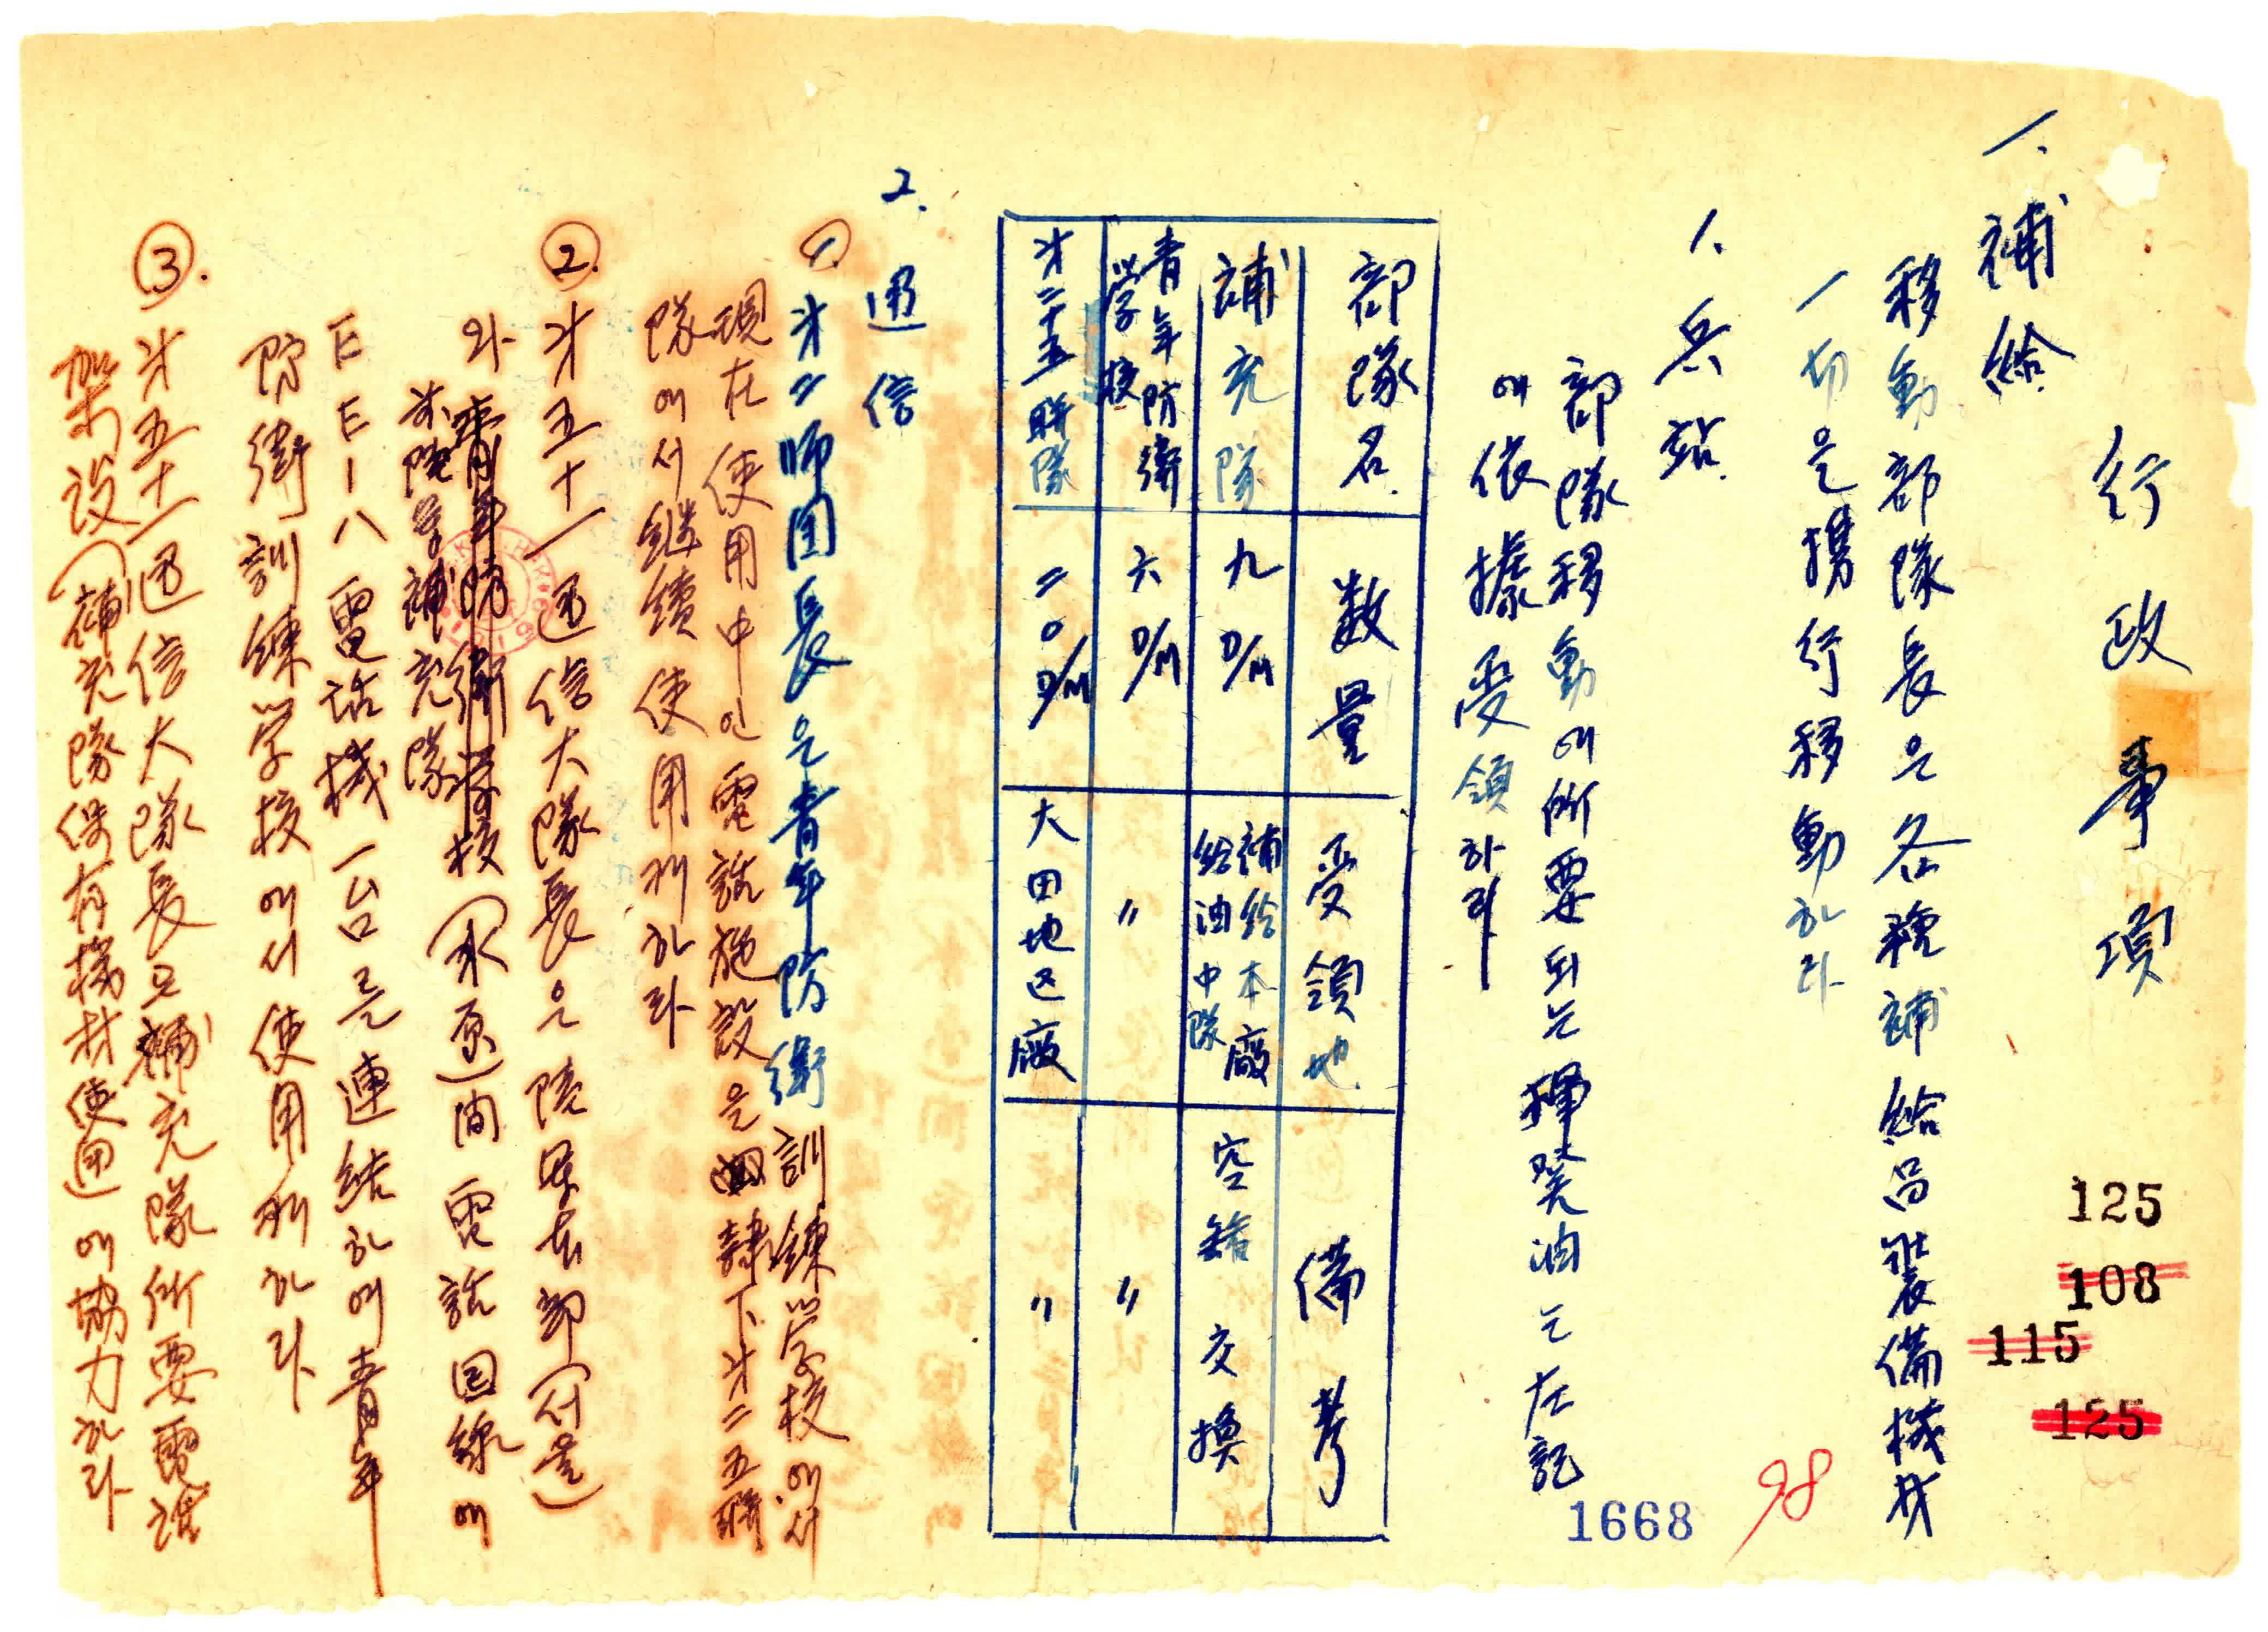 行政事項
一. 補給
移動部隊長은 各種補給品裝備機材
一切을 携行移動하라
1. 兵站
部隊移動에 所要되는 揮發油는 左記
에 依據 受領하라
部隊名 数量 受領地 備考
補充隊 九D/M 補給本廠給油中隊 空罐交換
青年防衛学校 六D/M 〃 〃
才二十五聯隊 二〇D/M 大田地区廠 〃
2. 通信
① 才二师团長은 青年防衛訓練学校에서
現在 使用中인 電話施設은 隷下 才二五聯
隊에서 継續 使用케 하라
② 才五十一通信大隊長은 陸軍本部(서울)
와 補充隊(水原)間 電話回線에
EE-八 電话機 一台를 連結하여 青年
防衛訓練学校에서 使用케 하라
③. 才五十一通信大隊長은 補充隊 所要電話
架设(補充隊保有機材使用)에 協力하라
125
108
115
125
98
1668